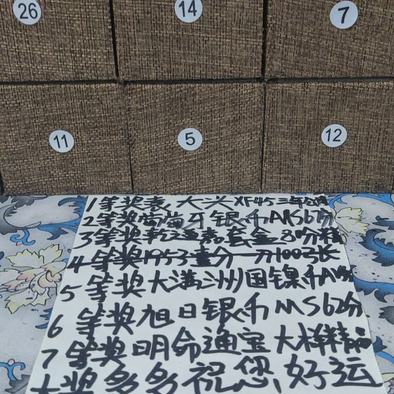 26 14 7
11 5 12
1等奖袁大头XF45三年
2等奖葡萄牙银币
3等奖乾隆嘉套盒80分
4等奖1953壹分一分100
5等奖大满洲国镍币
6等奖旭日银币MS62分
7等奖明命通宝大样精品
大奖多多祝您好运